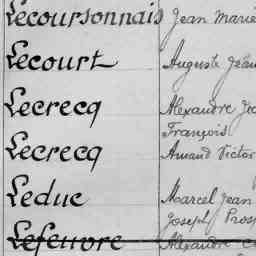 Lecoursonnais Jean Marie
Lecourt Auguste Jean
Lecrecq Alexandre
François
Lecrecq Amand Victor
Leduc Marcel Jean
Joseph Prosp
Lefeuvre Alexandre